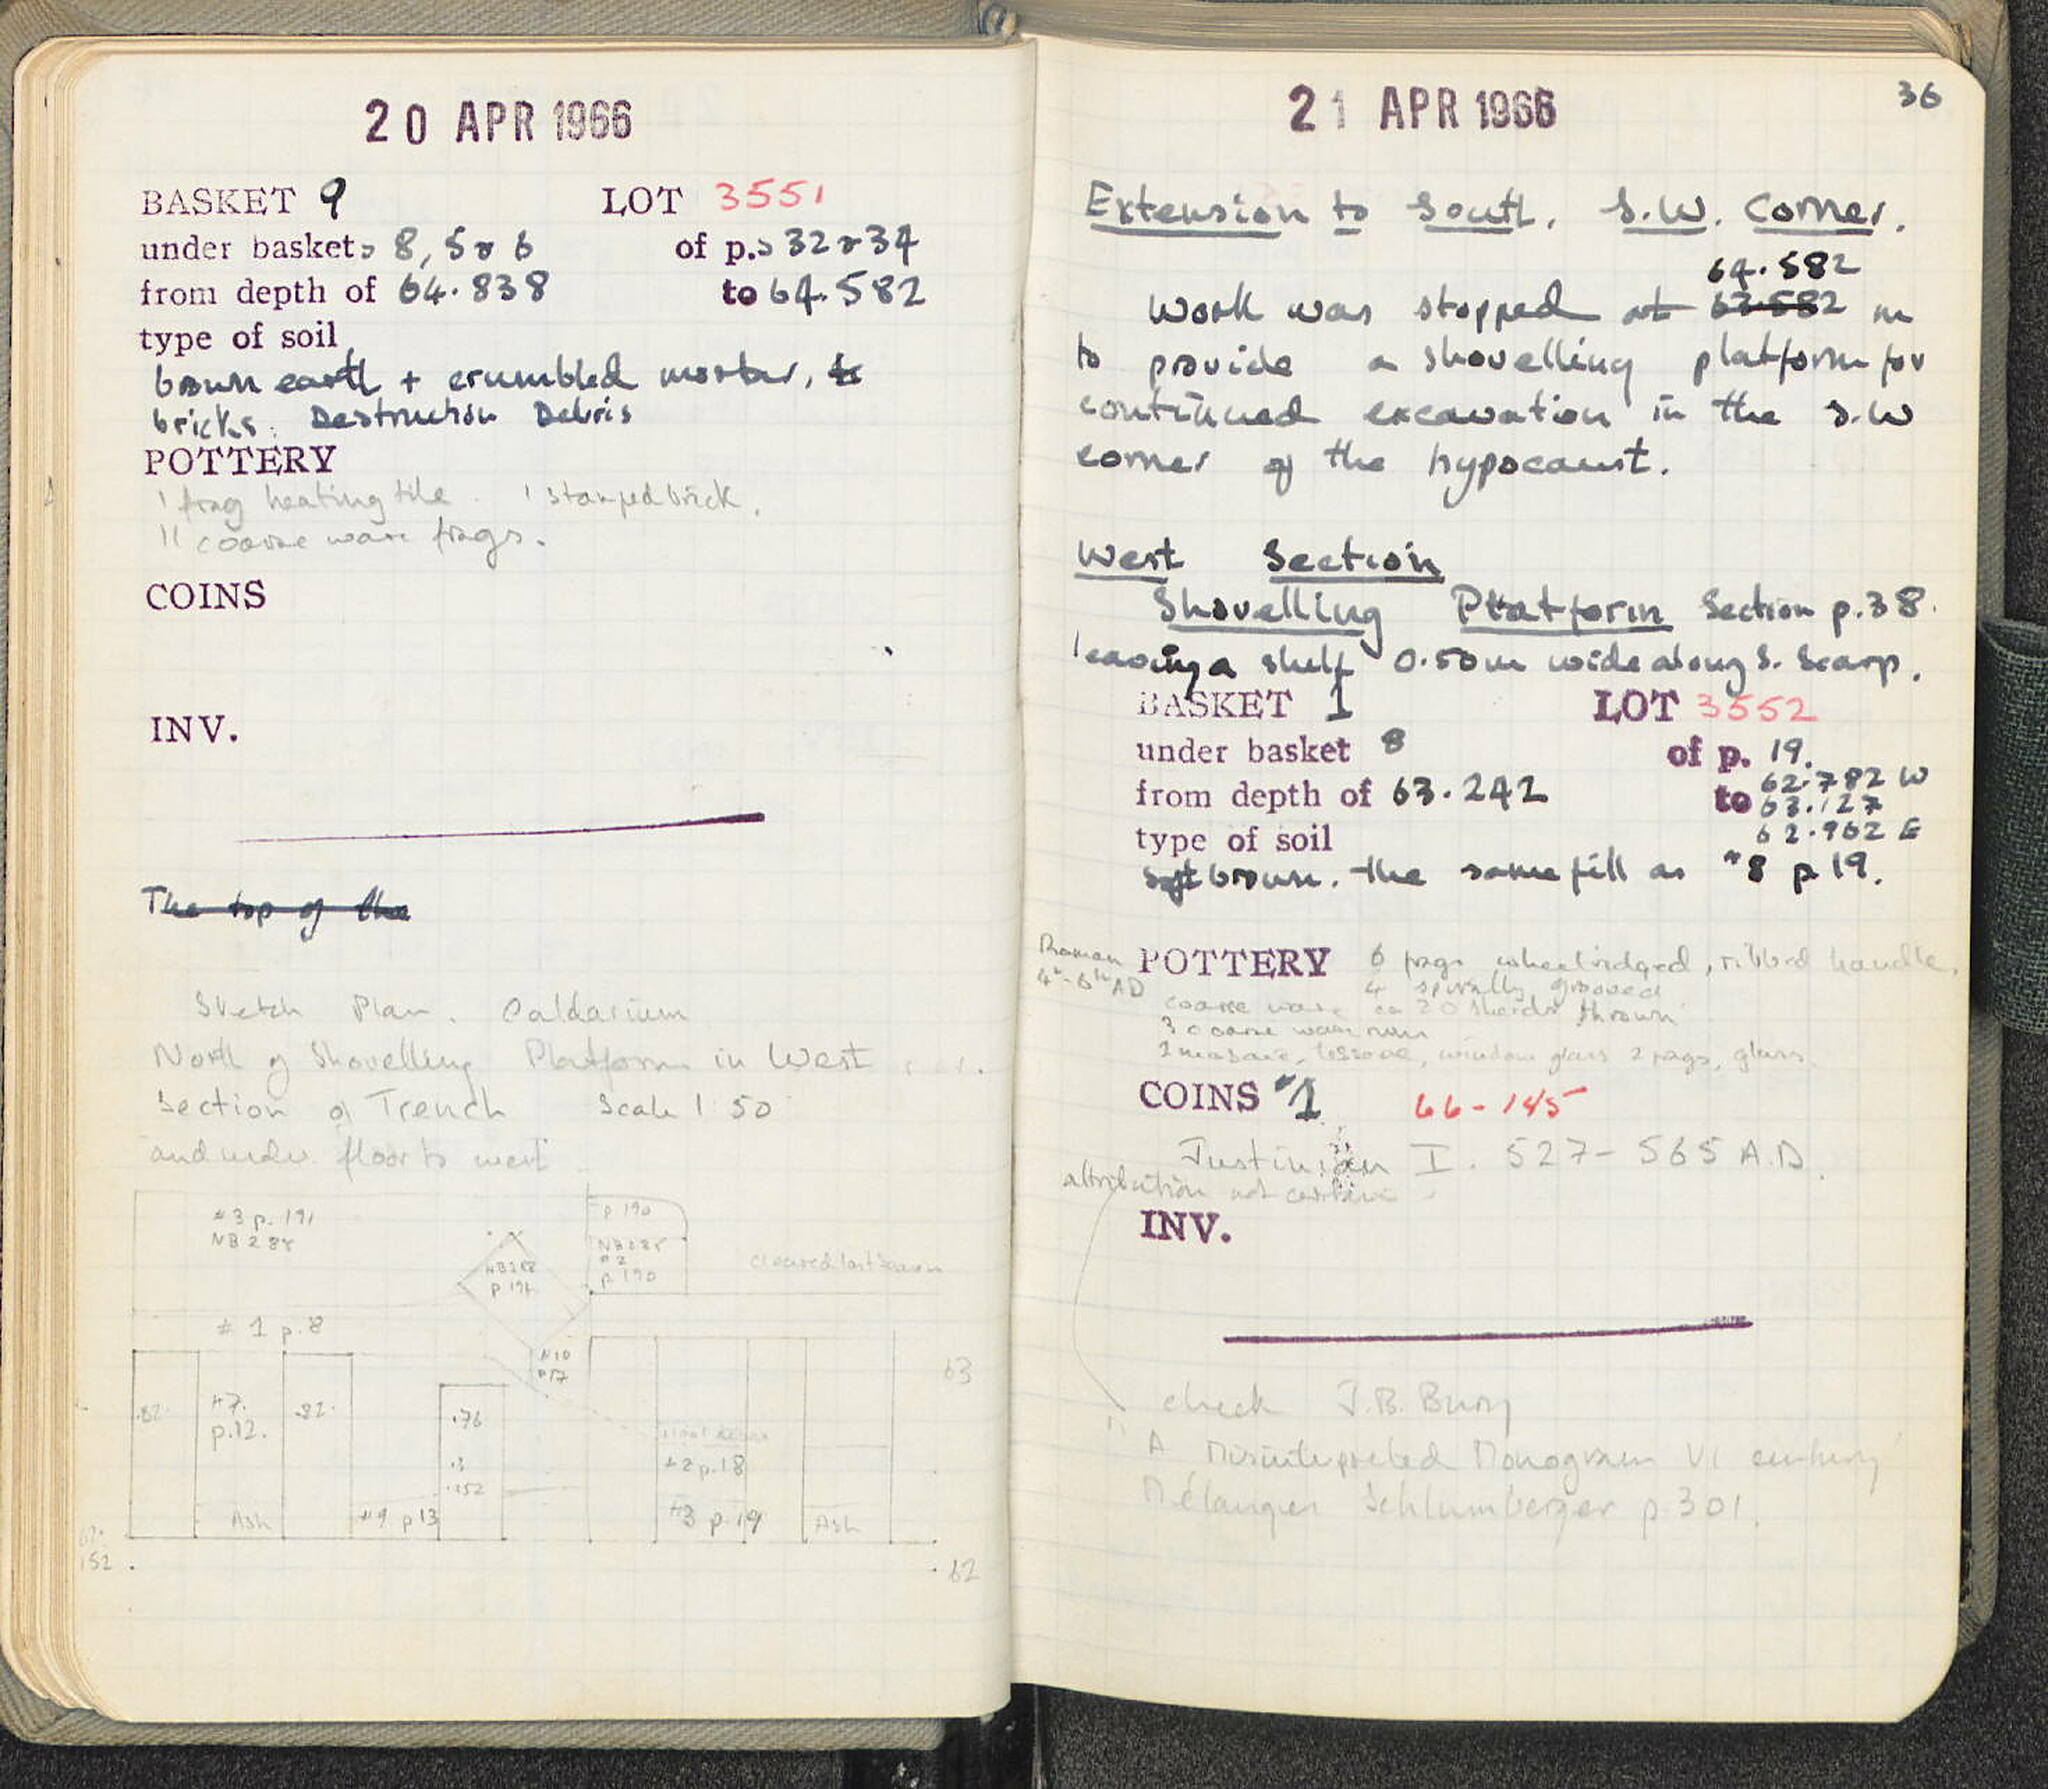 20 APR 1966
BASKET 9 LOT 3551
under baskets 8, 5 & 6 of p.s 32 & 34
from depth of 64.838 to 64.582
type of soil
brown earth + crumbled mortar,
bricks. Destruction Debris
POTTERY
1 frag heating tile. 1 stamped brick.
11 coarse ware frags.
COINS
INV.
The top of the
Sketch Plan. Caldarium
North of Shovelling Platform in West
Section of Trench Scale 1:50
and under floor to west
#3 p. 191
NB 285
NB 285
p 191
p 190
NB 285
#2
p 190
cleared last season
# 1 p. 8
#10
p17
63
.82
#7.
p.12.
.82
.76
.3
.152
#2 p.18
Ash
#9 p13
#3 p.19
Ash
152
62
21 APR 1966
36
Extension to South. S.W. Corner.
64.582
Work was stopped at 63.582 m
to provide a shovelling platform for
continued excavation in the S.W
corner of the hypocaust.
West Section
Shovelling Platform Section p.38.
leaving a shelf 0.50m wide along S. Scarp.
BASKET 1 LOT 3552
under basket 8 of p. 19.
62.782 W
from depth of 63.242 to 63.127
62.962 E
type of soil
soft brown. the same fill as #8 p 19.
Roman
4th-6th AD
POTTERY 6 frags wheelridged, ribbed handle,
4 spirally grooved
coarse ware ca 20 sherds thrown
3 coarse ware rims
2 mosaic tesserae, window glass 2 frags, glass
COINS #1 66-145
Justinian I. 527-565 A.D.
attribution not certain
INV.
check J.B. Bury
"A Misinterpreted Monogram VI century"
Mélanges Schlumberger p.301.